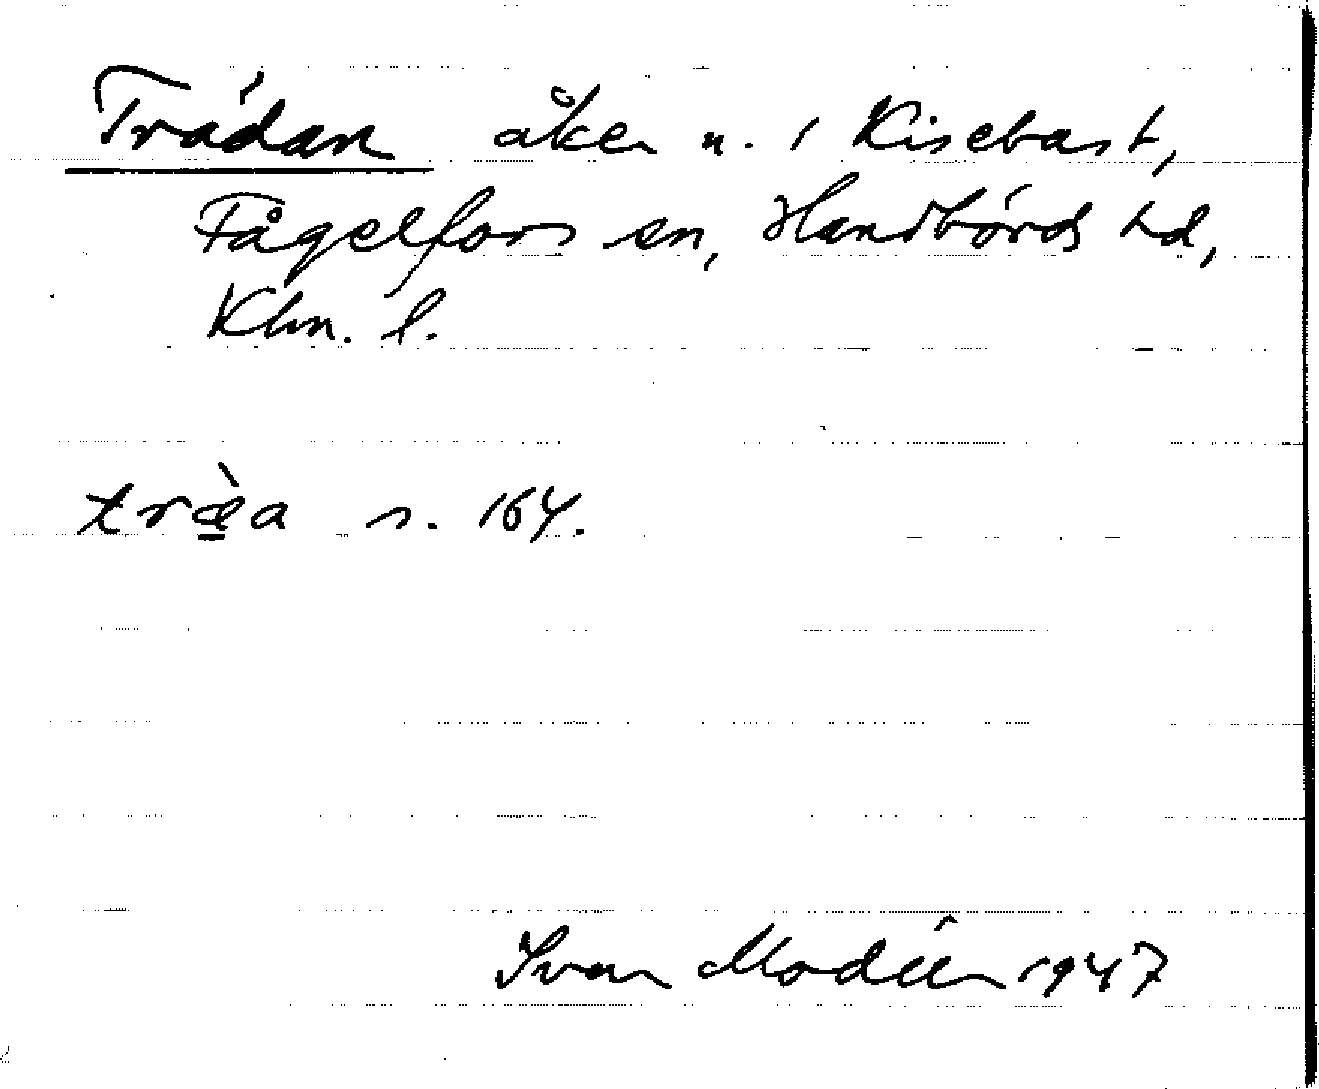 Trädan åker n. i Kisebast,
Fågelfors sn, Handbörds hd,
Klm. l.
træ̱̀a s. 164.
Ivar Modéer 1947